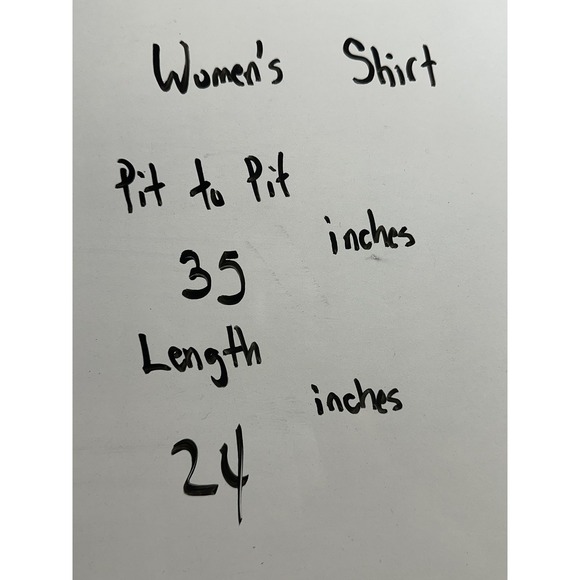 Women's Shirt
Pit to Pit
inches
35
Length
inches
24